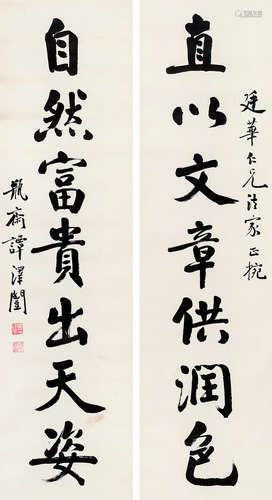 廷華仁兄法家正捥
直以文章供潤色
自然富貴出天姿
瓶齋譚澤闓